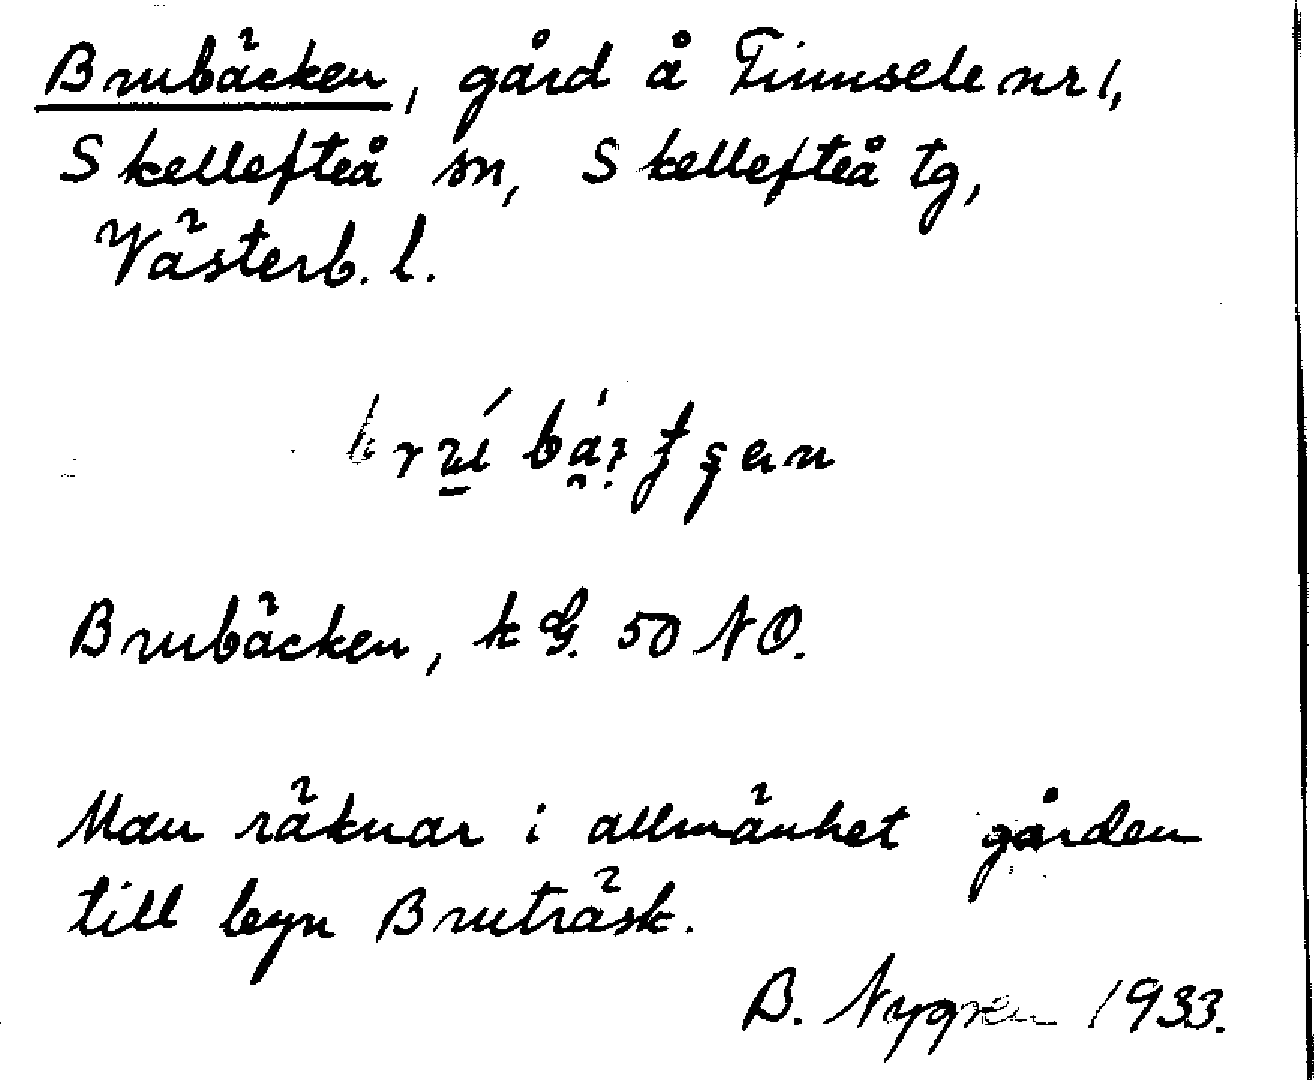 Brubäcken, gård å Finnsele nr 1,
Skellefteå sn, Skellefteå tg,
Västerb. l.
Brubäcken, k G. 50 NO.
Man räknar i allmänhet gården
till byn Bruträsk.
B. Nygren 1933.